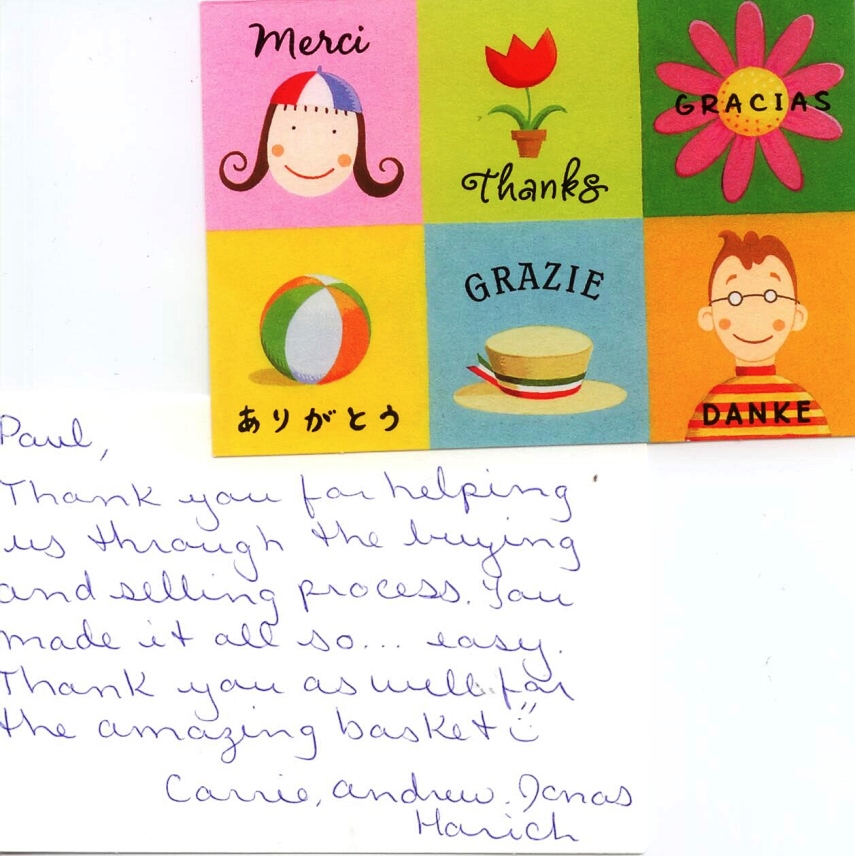 Merci
Thanks
GRACIAS
ありがとう
GRAZIE
DANKE
Paul,
Thank you for helping
us through the buying
and selling process. You
made it all so... easy.
Thank you as well for
the amazing basket
Carrie, Andrew, Jonas
Harich